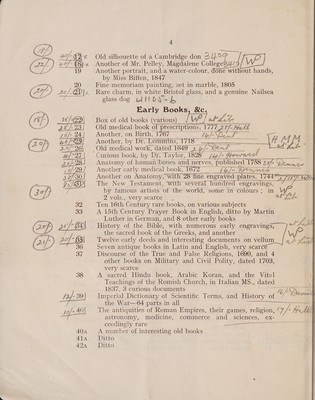 4
12 Old silhouette of a Cambridge don 3429
18 Another of Mr. Pelley, Magdalene College
19 Another portrait, and a water-colour, done without hands,
by Miss Biffen, 1847
20 Fine mormoriam painting, set in marble, 1805
21 Rare charm, in white Bristol glass, and a genuine Nailsea
glass dog
Early Books, &c.
22 Box of old books (various) WP
23 Old medical book of prescriptions, 1777
24 Another, on Birth, 1767
Another, by Dr. Lommins, 1718 HMM
26 Old medical work, dated 1649
27 Curious book, by Dr. Taylor, 1828
28 Anatomy of human bones and nerves, published 1758
29 Another early medical book, 1672
30 Another on Anatomy, with 28 fine engraved plates, 1744
31 The New Testament, with several hundred engravings,
by famous artists of the world, some in colours; in
2 vols., very scarce
32 Ten 16th Century rare books, on various subjects
33 A 15th Century Prayer Book in English, ditto by Martin
Luther in German, and 8 other early books
History of the Bible, with numerous early engravings,
the sacred book of the Greeks, and another
Twelve early deeds and interesting documents on vellum
36 Seven antique books in Latin and English, very scarce
37 Discourse of the True and False Religions, 1690, and 4
other books on Military and Civil Polity, dated 1703,
very scarce
38 A sacred Hindu book, Arabic Koran, and the Vital
Teachings of the Romish Church, in Italian MS., dated
1837, 3 curious documents
39 Imperial Dictionary of Scientific Terms, and History of
the War—64 parts in all
40 The antiquities of Roman Empires, their games, religion,
astronomy, medicine, commerce and sciences, ex-
ceedingly rare
40A A number of interesting old books
41A Ditto
42A Ditto